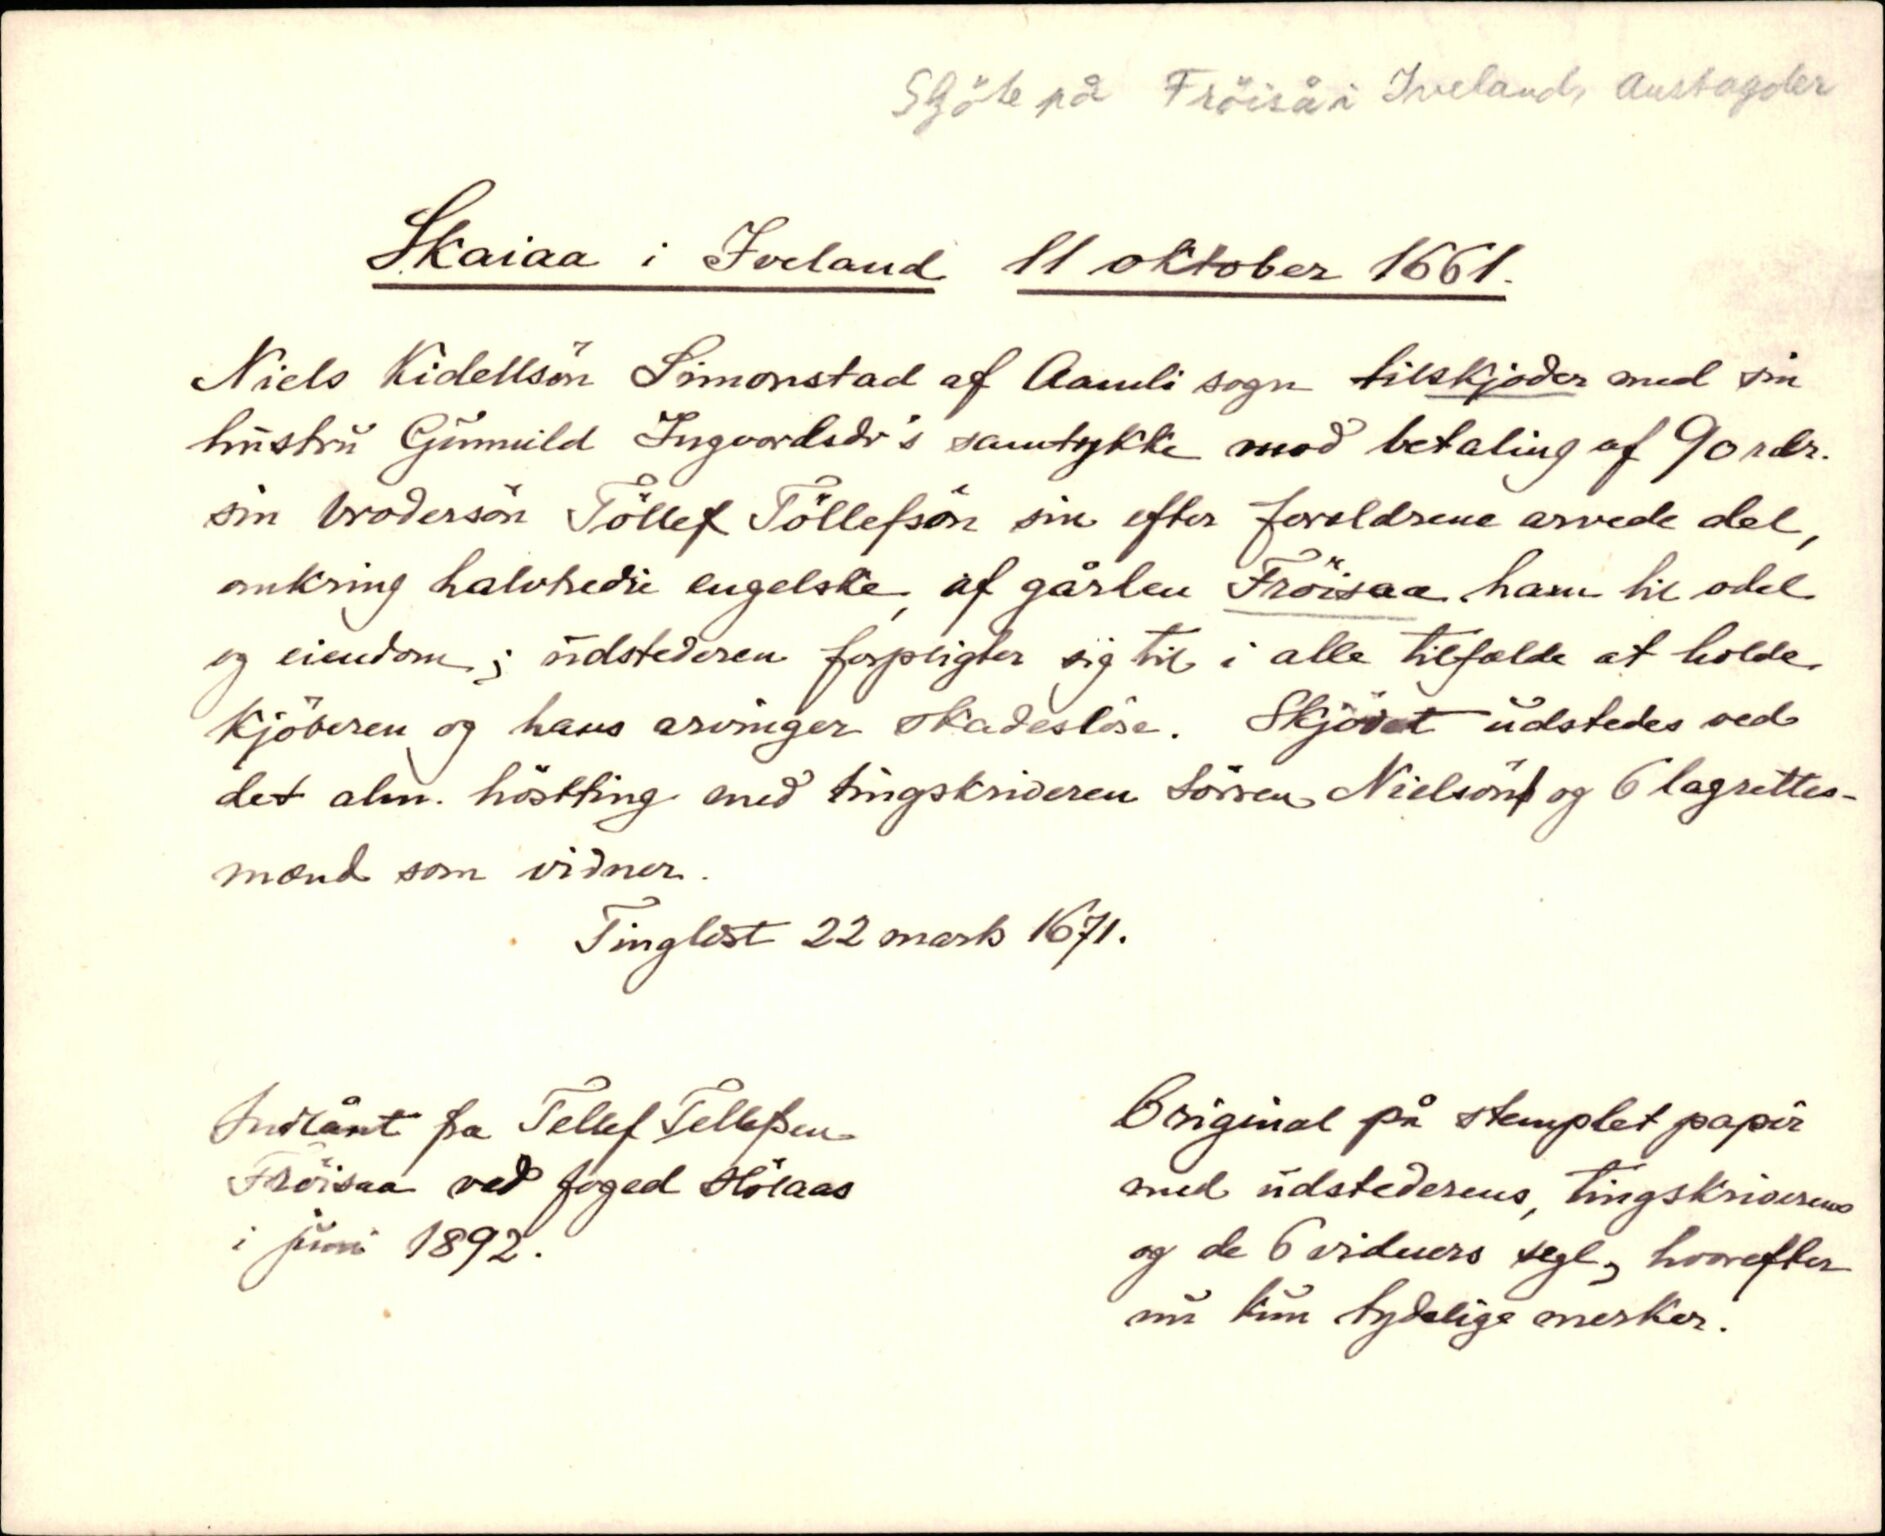 Skjöte på Fröiså i Iveland, Austagder
Skaiaa i Iveland 11 oktober 1661.
Niels Kidellsön Simonstad af Aamli sogn tilskjøder med sin
hustru Gunnild Ingvordsdr's samtykke mod betaling af 90 rdr.
sin brodersön Töllef Töllefsön sin efter forældrene arvede del,
omkring halvtredie engelske, af gården Fröisaa ham til odel
og eiendom; udstederen forpligter sig til i alle tilfælde at holde
kjöberen og hans arvinger skadeslöse. Skjödet udstedes ved
det alm. höstting med tingskriveren Sörren Nielsön og 6 lagrettes-
mænd som vidner.
Tinglæst 22 marts 1671.
Indlånt fra Tellef Tellefsen
Fröisaa ved foged Hölaas
i juni 1892.
Original på stemplet papir
med udstederens, tingskriverens
og de 6 vidners segl, hvorefter
nu kun tydelige merker.